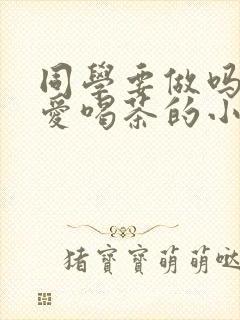 同學要做吗
愛喝茶的小
猪寶寶萌萌哒